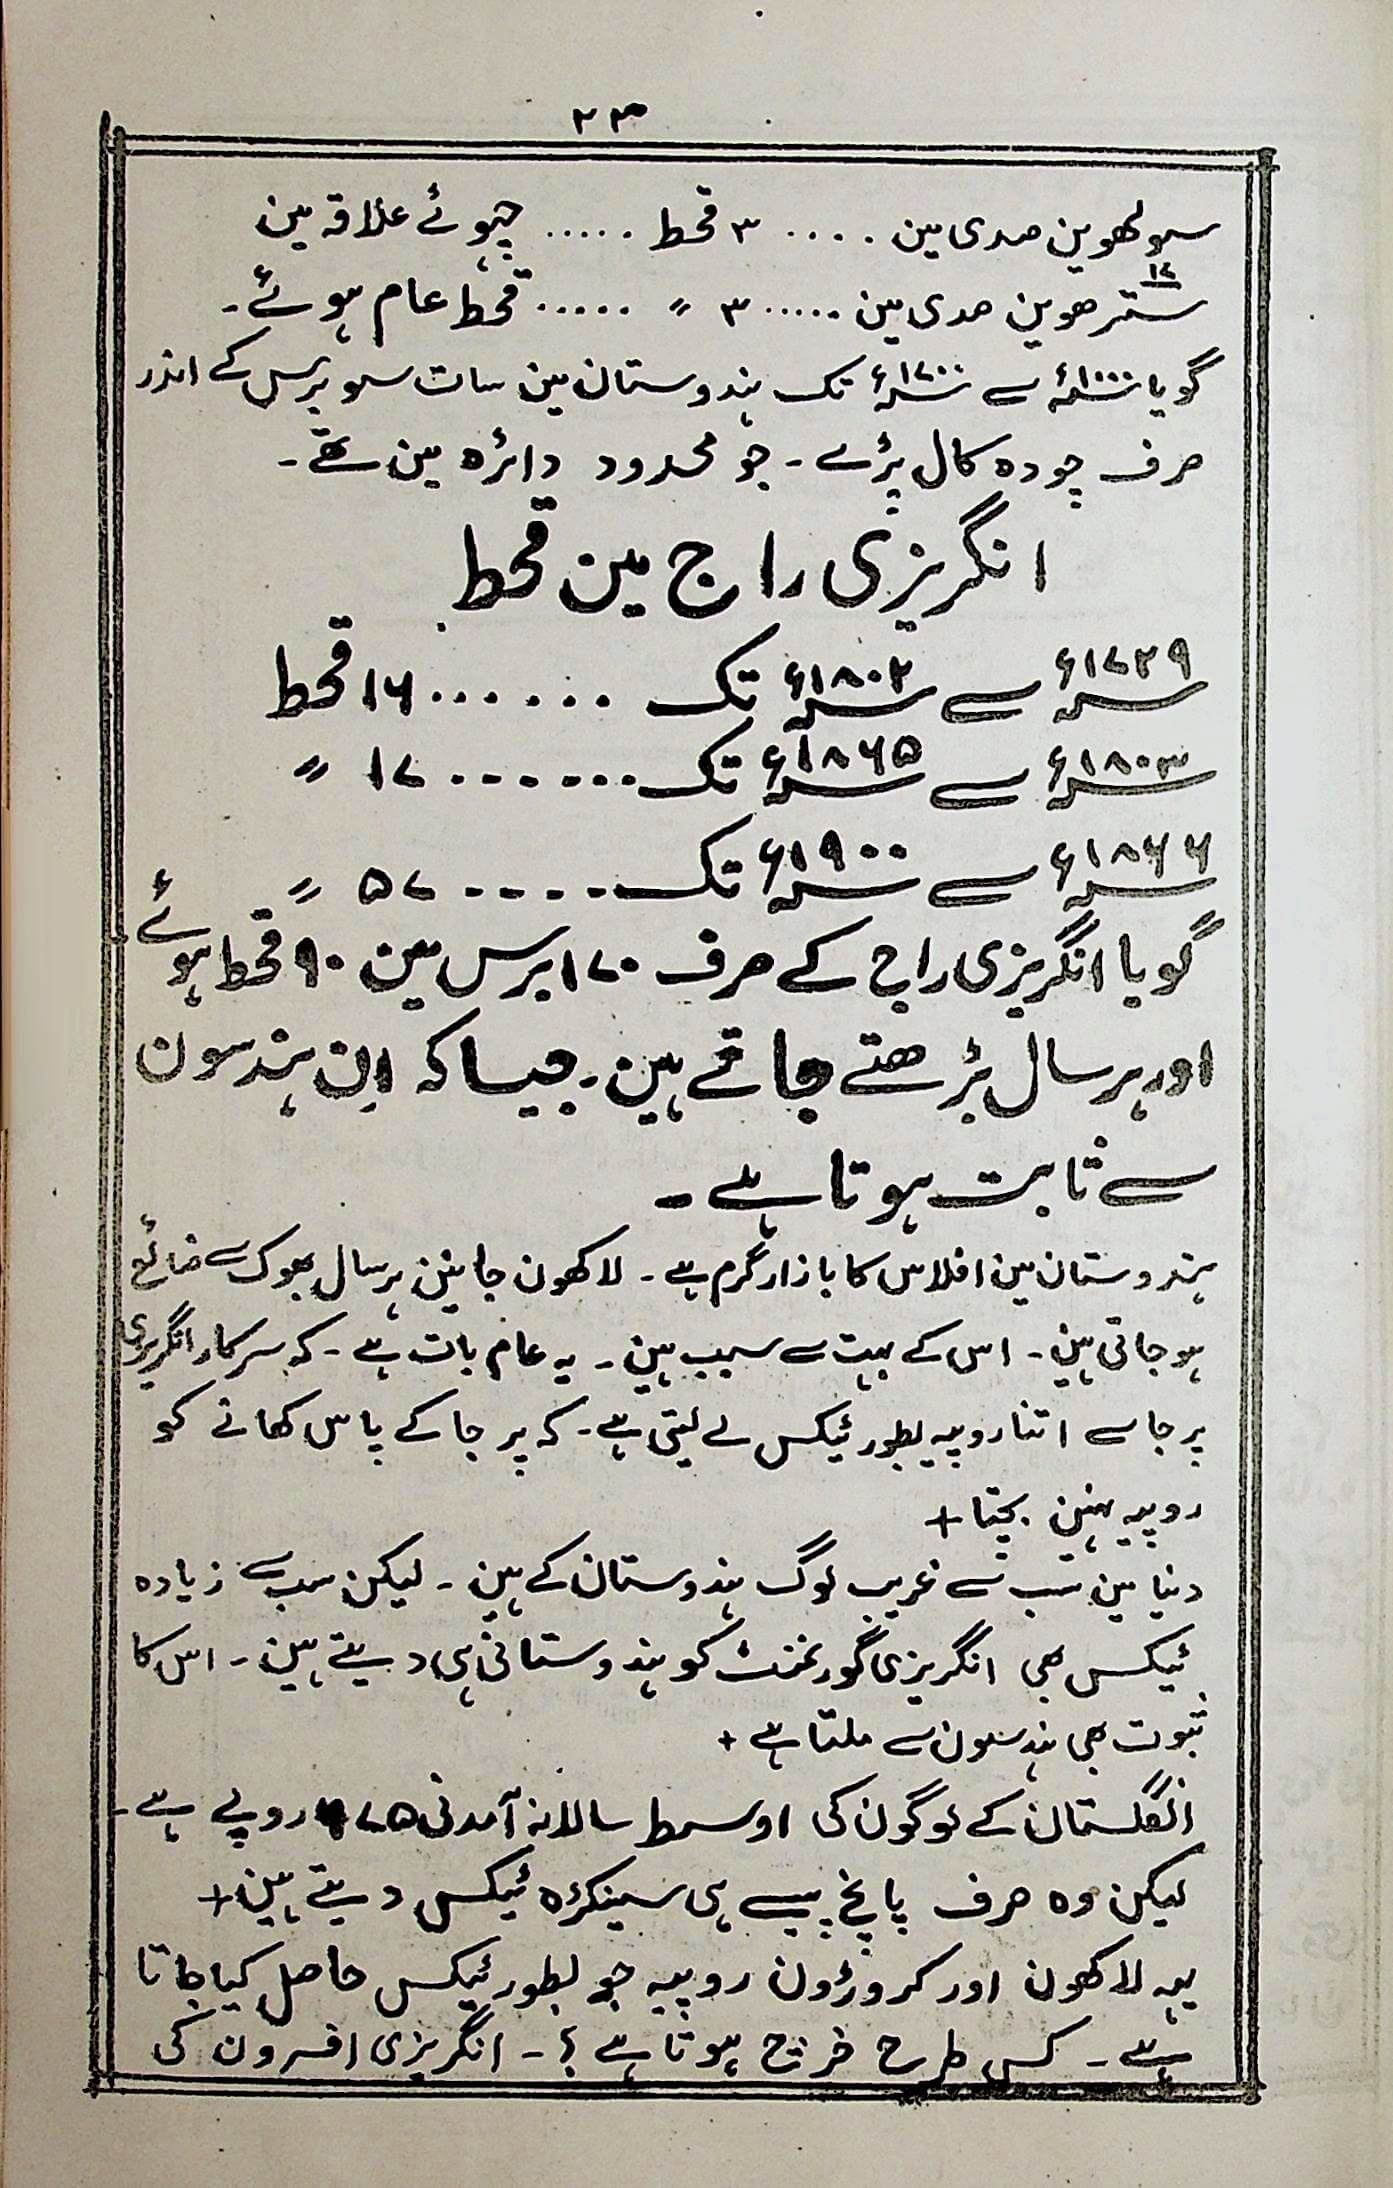 ۲۳
سولھوین صدی مین .... ۳ قحط ..... چھوٹے علاقہ مین
۱۷
سترھوین صدی مین ..... ۳ " ..... قحط عام ہوئے۔
گویا ۱۰۰۰ء سے ۱۷۰۰ء تک ہندوستان مین سات سو برس کے اندر
صرف چودہ کال پڑے۔ جو محدود دائرہ مین تھے۔
انگریزی راج مین قحط
۱۷۲۹ء سے ۱۸۰۲ء تک ...... ۱۶ قحط
۱۸۰۳ء سے ۱۸۶۵ء تک ...... ۱۷ "
۱۸۶۶ء سے ۱۹۰۰ء تک ..... ۵۷ "
گویا انگریزی راج کے صرف ۱۷۰ برس مین ۹۰ قحط ہوئے
اور ہر سال بڑھتے جاتے ہین۔ جیسا کہ ان ہندسون
سے ثابت ہوتا ہے۔
ہندوستان مین افلاس کا بازار گرم ہے۔ لاکھون جانین ہر سال بھوک سے ضائع
ہو جاتی ہین۔ اس کے بہت سے سبب ہین۔ یہ عام بات ہے۔ کہ سرکار انگریزی
پرجا سے اتنا روپیہ بطور ٹیکس لے لیتی ہے۔ کہ پرجا کے پاس کھانے کو
روپیہ نہین بچتا +
دنیا مین سب سے غریب لوگ ہندوستان کے ہین۔ لیکن سب سے زیادہ
ٹیکس بھی انگریزی گورنمنٹ کو ہندوستانی ہی دیتے ہین۔ اس کا
ثبوت بھی ہندسون سے ملتا ہے +
انگلستان کے لوگون کی اوسط سالانہ آمدنی روپے ہے۔
لیکن وہ صرف پانچ پیسے ہی سینکڑہ ٹیکس دیتے ہین +
یہہ لاکھون اور کروڑون روپیہ جو بطور ٹیکس حاصل کیا جاتا
ہے۔ کس طرح خرچ ہوتا ہے ؟۔ انگریزی افسرون کی